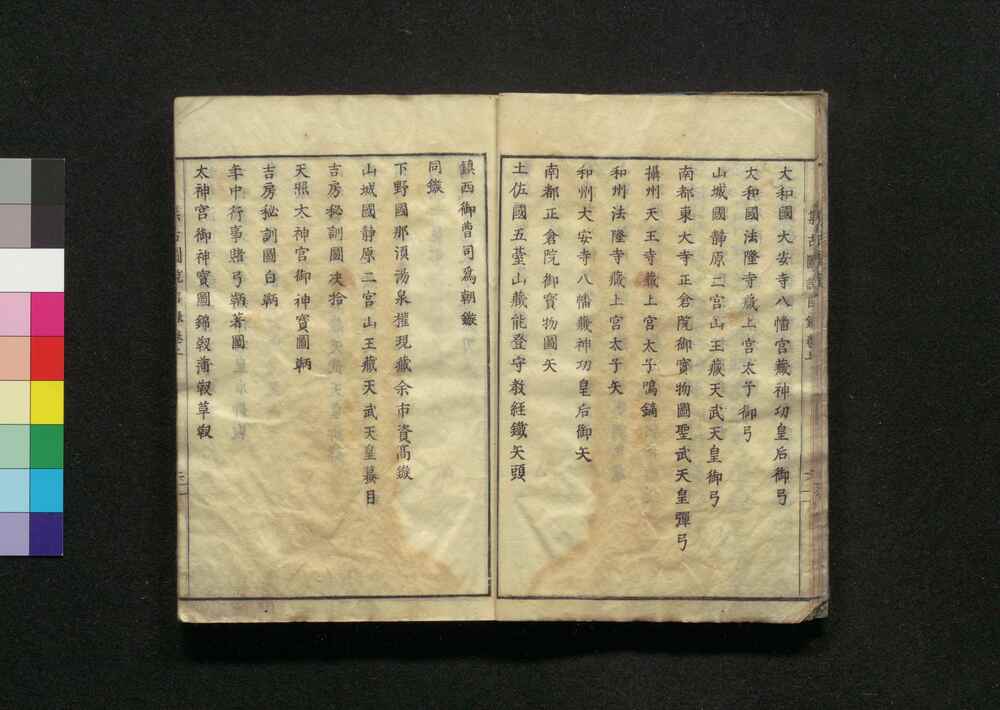 大和國大安寺八幡宮蔵神功皇后御弓
大和國法隆寺蔵上宮太子御弓
山城國静原二宮山王蔵天武天皇御弓
南都東大寺正倉院御寳物圖聖武天皇彈弓
攝州天王寺蔵上宮太子鳴鏑
和州法隆寺蔵上宮太子矢
和州大安寺八幡蔵神功皇后御矢
南都正倉院御寳物圖矢
土佐國五䑓山蔵能登守教経鐵矢頭
鎮西御曹司爲朝鏃
同鏃
下野國那須湯泉權現蔵余市資髙鏃
山城國静原二宮山王蔵天武天皇蟇目
吉房秘訓圖决拾
天照太神宮御神寳圖鞆
吉房秘訓圖白鞆
年中行事賭弓鞆著圖
太神宮御神寳圖錦靫蒲靫革靫